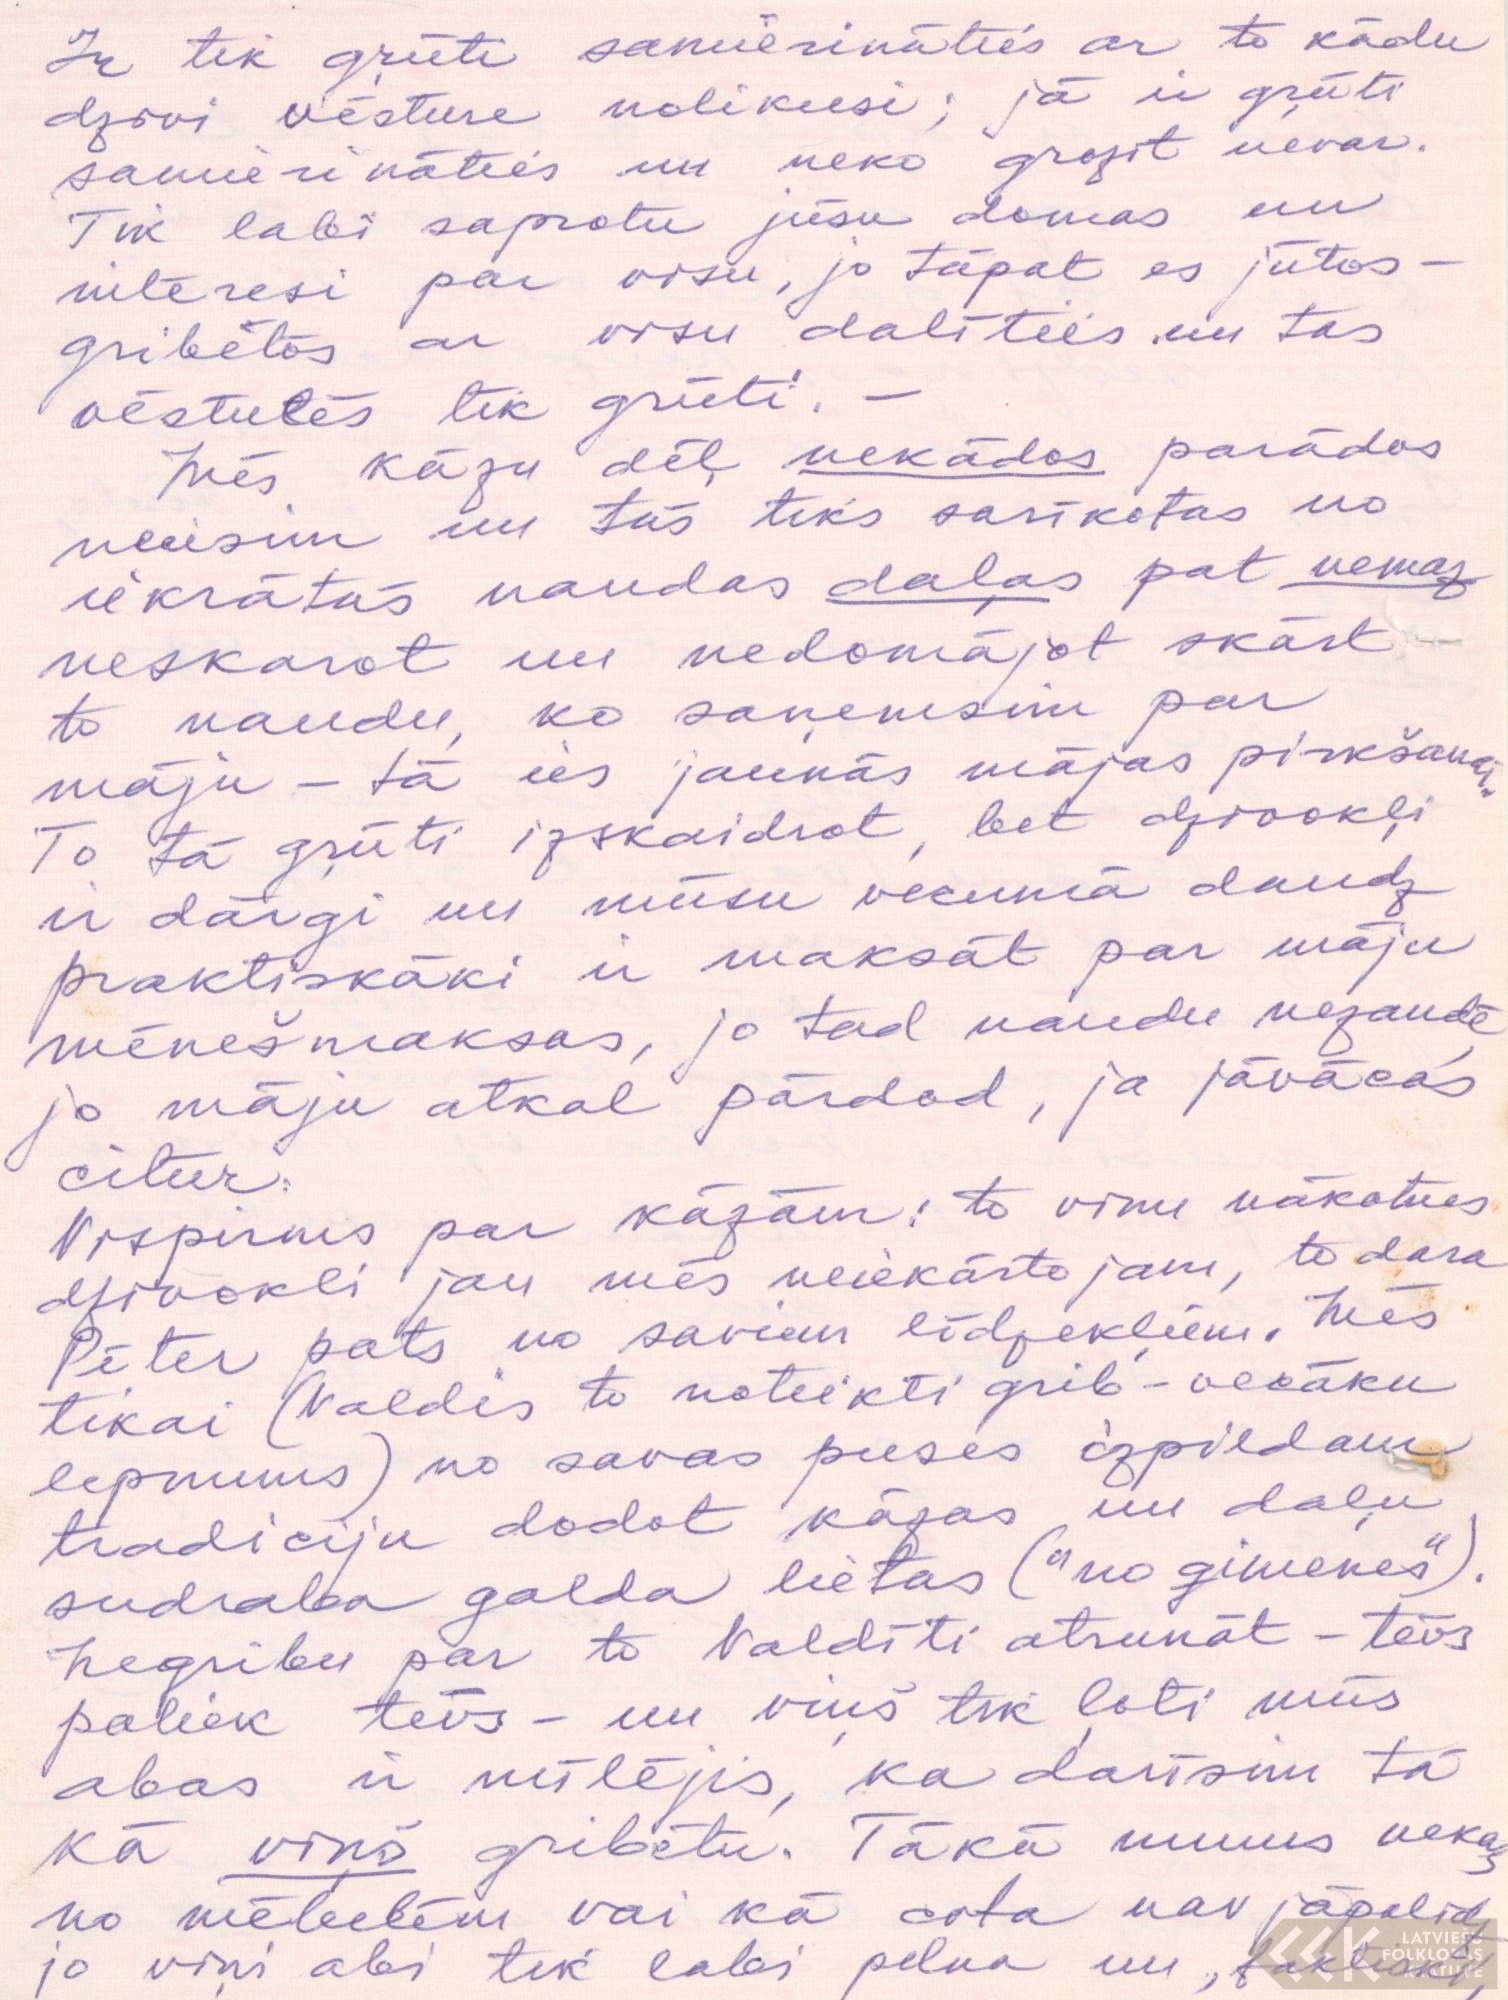 Ir tik grūti samierināties ar to kādu
dzīvi vēsture nolikusi; jā ir grūti
samierināties un neko grozīt nevar.
Tik labi saprotu jūsu domas un
interesi par visu, jo tāpat es jūtos –
gribētos ar visu dalīties un tas
vēstulēs tik grūti. –
Mēs kāzu dēļ nekādos parādos
neiesim un tās tiks sarīkotas no
iekrātās naudas daļas pat nemaz
neskarot un nedomājot skart
to naudu, ko saņemsim par
māju – tā ies jaunās mājas pirkšanai.
To tā grūti izskaidrot, bet dzīvokļi
ir dārgi un mūsu vecumā daudz
praktiskāki ir maksāt par māju
mēnešmaksas, jo tad naudu nezaudē
jo māju atkal pārdod, ja jāvācās
citur.
Vispirms par kāzām: to viņu nākotnes
dzīvokli jau mēs neiekārtojam, to dara
Pēter pats no saviem līdzekļiem. Mēs
tikai (Valdis to noteikti grib – vecāku
lepnums) no savas puses izpildam
tradiciju dodot kāzas un daļu
sudraba galda lietas ("no ģimenes").
Negribu par to Valdīti atrunāt – tēvs
paliek tēvs – un viņš tik ļoti mūs
abas ir mīlējis, ka darīsim tā
kā viņš gribētu. Tākā mums nekas
no mēbelēm vai kā cita nav jāpalīdz
jo viņi abi tik labi pelna un
LATVIEŠU
FOLKLORAS
KRĀTUVE